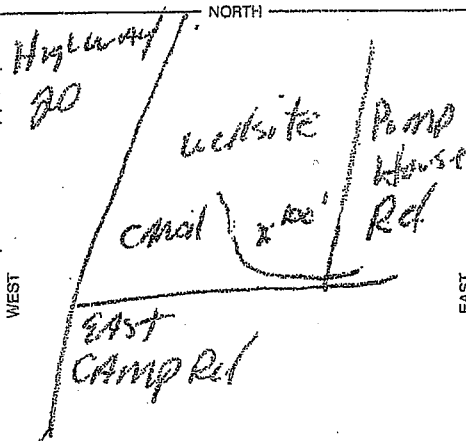 NORTH
Highway
20
wellsite
Pump
House
Rd
Canal
x 100'
WEST
EAST
EAST
CAmp Rd